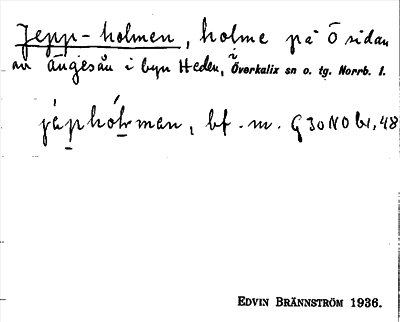 Jepp-holmen, holme på Ö sidan
av ängesån i byn Heden, i Överkalix sn o. tg. Norrb. l.
bf. m. G 30 NO br, 48
EDVIN BRÄNNSTRÖM 1936.